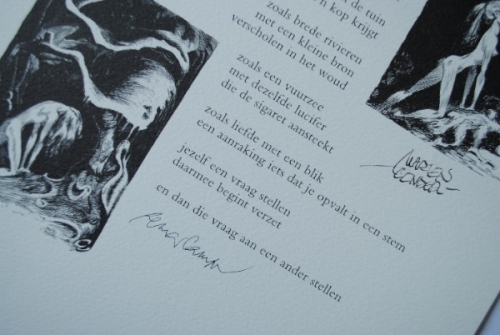 de tuin
n kop krijgt
zoals brede rivieren
met een kleine bron
verscholen in het woud
zoals een vuurzee
met dezelfde lucifer
die de sigaret aansteekt
zoals liefde met een blik
een aanraking iets dat je opvalt in een stem
jezelf een vraag stellen
daarmee begint verzet
en dan die vraag aan een ander stellen